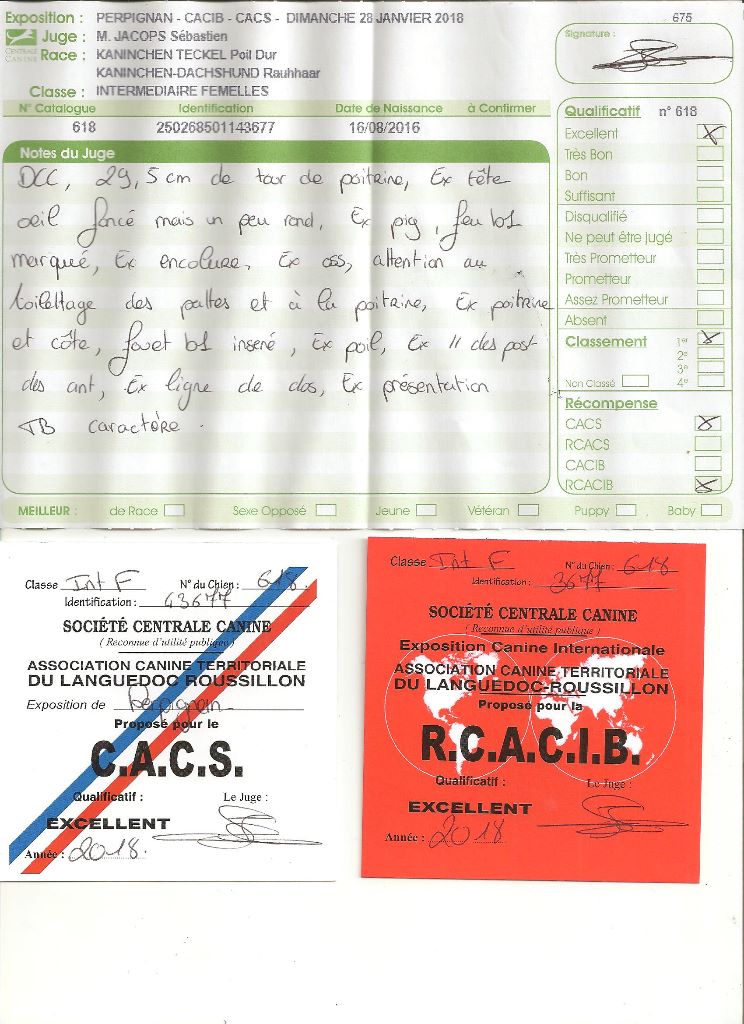 Exposition : PERPIGNAN - CACIB - CACS - DIMANCHE 28 JANVIER 2018
675
Juge : M. JACOPS Sébastien
Signature :
CENTRALE CANINE
Race : KANINCHEN TECKEL Poil Dur
KANINCHEN-DACHSHUND Rauhhaar
Classe : INTERMEDIAIRE FEMELLES
N° Catalogue Identification Date de Naissance à Confirmer
618 250268501143677 16/08/2016
Notes du Juge
DCC, 29,5 cm de tour de poitrine, Ex tête
oeil foncé mais un peu rond, Ex pig, feu b1
marqué, Ex encolure, Ex oss, attention au
toilettage des pattes et à la poitrine, Ex poitrine
et côte, fouet b1 inseré, Ex poil, Ex // des post
des ant, Ex ligne de dos, Ex présentation
TB caractère.
Qualificatif n° 618
Excellent X
Très Bon
Bon
Suffisant
Disqualifié
Ne peut être jugé
Très Prometteur
Prometteur
Assez Prometteur
Absent
Classement 1er X
2e
3e
Non Classé 4e
Récompense
CACS X
RCACS
CACIB
RCACIB X
MEILLEUR : de Race Sexe Opposé Jeune Vétéran Puppy Baby
Classe Int F N° du Chien : 618
Identification : 43677
SOCIÉTÉ CENTRALE CANINE
( Reconnue d'utilité publique )
ASSOCIATION CANINE TERRITORIALE
DU LANGUEDOC ROUSSILLON
Exposition de Perpignan
Proposé pour le
C.A.C.S.
Qualificatif : Le Juge :
EXCELLENT
Année : 2018.
Classe Int F N° du Chien : 618
Identification : 3677
SOCIÉTÉ CENTRALE CANINE
( Reconnue d'utilité publique )
Exposition Canine Internationale
ASSOCIATION CANINE TERRITORIALE
DU LANGUEDOC-ROUSSILLON
Proposé pour la
R.C.A.C.I.B.
Qualificatif : Le Juge :
EXCELLENT
Année : 2018